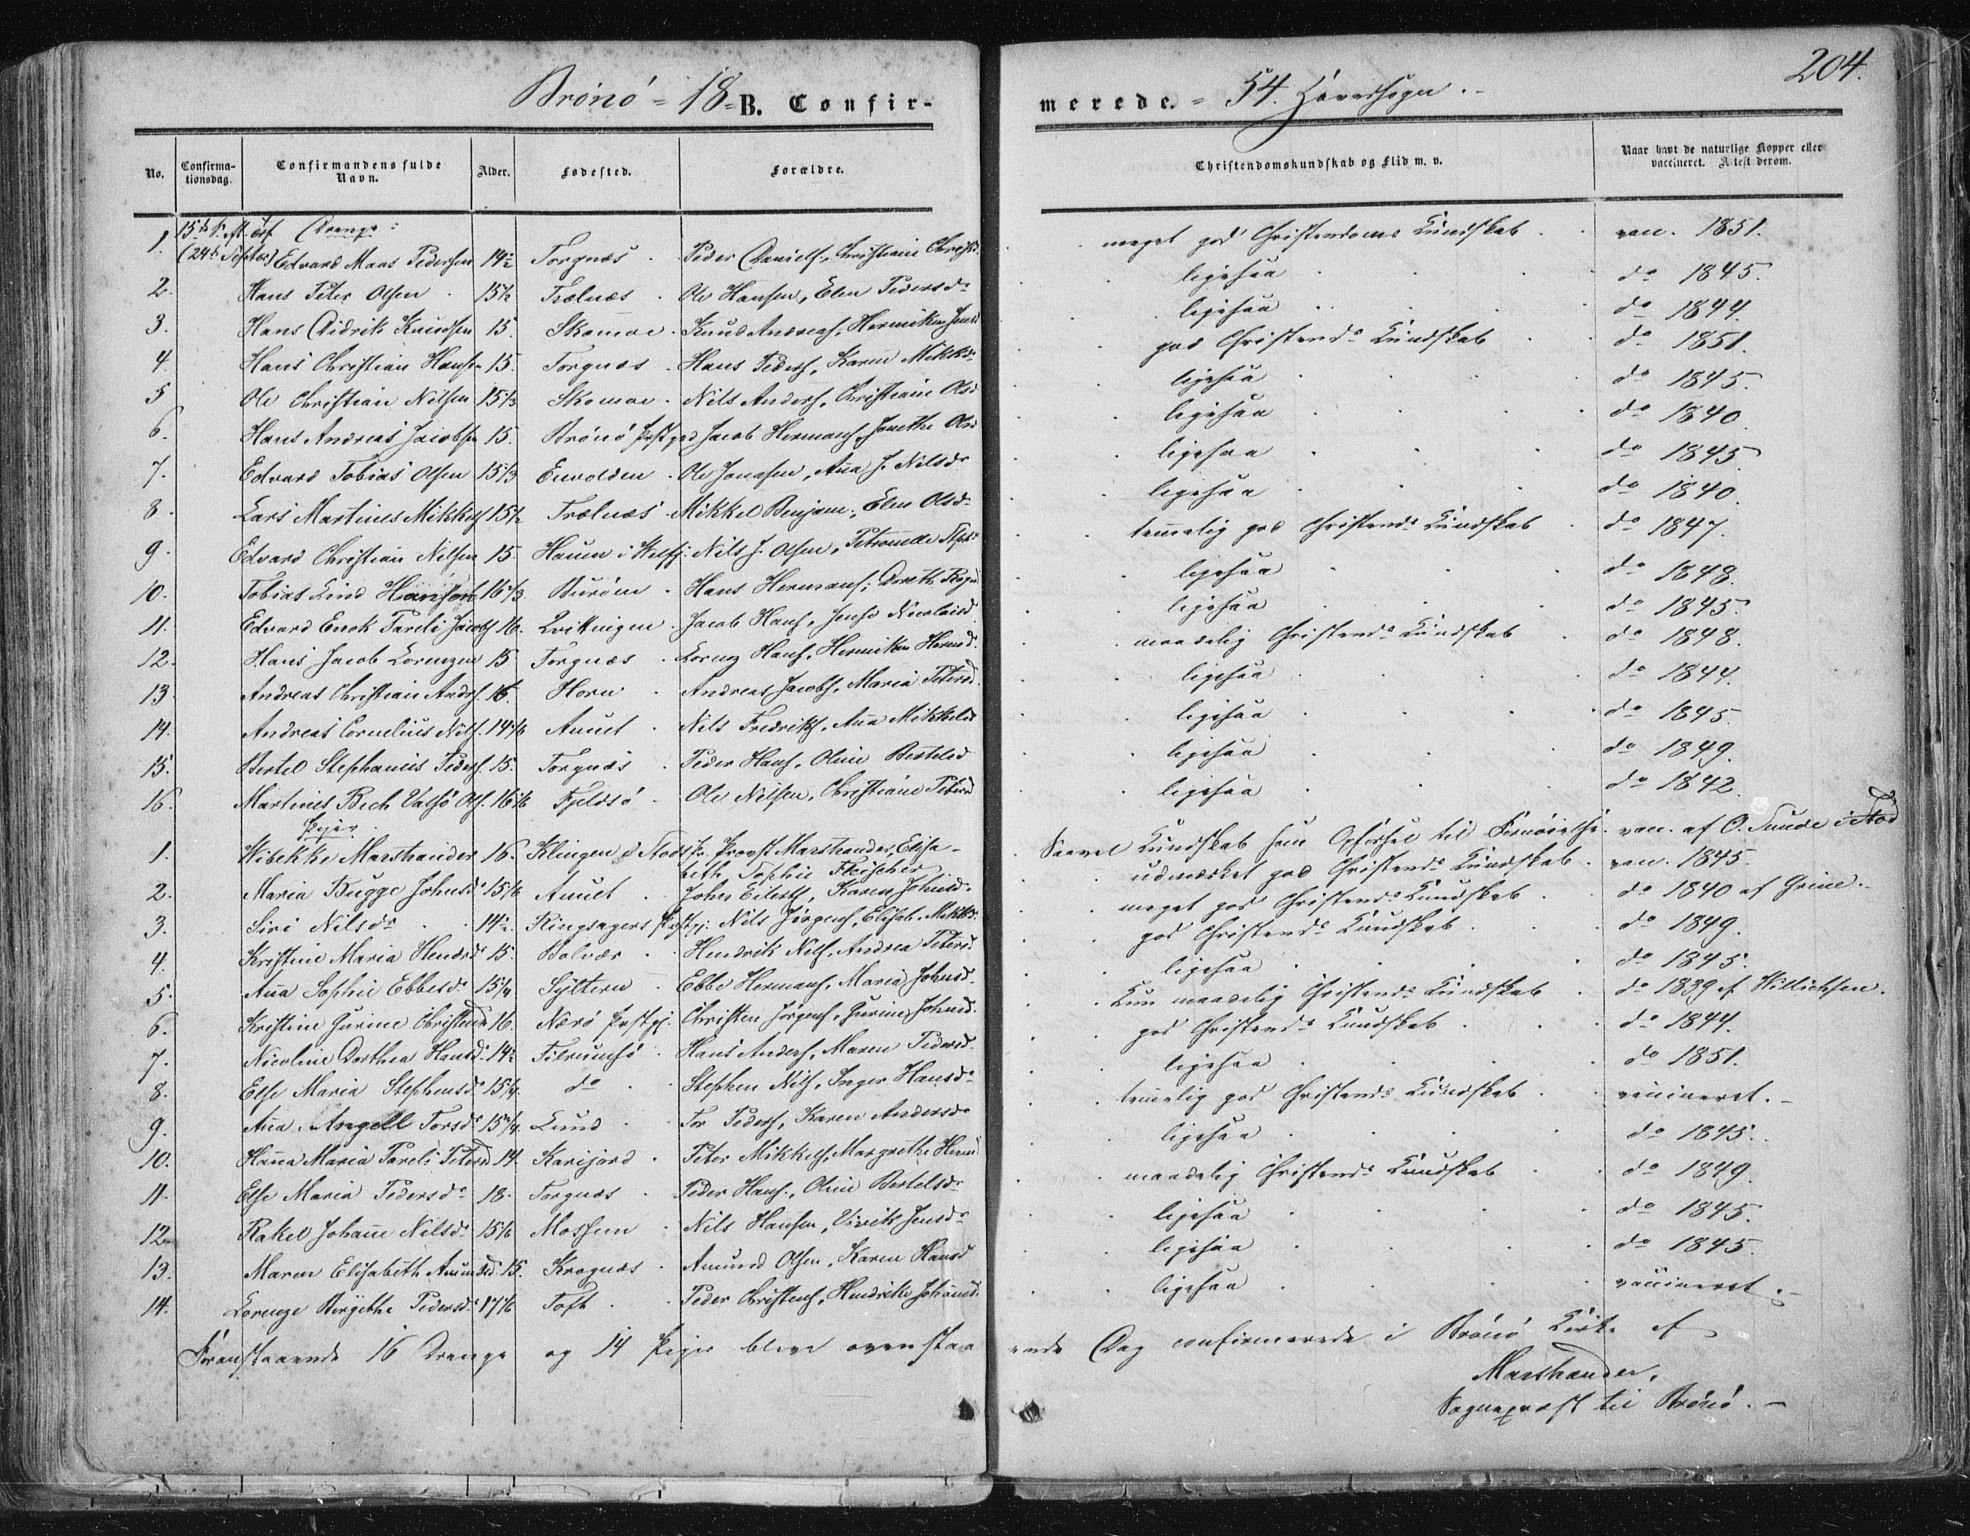 204.
Brönö - 18 - B. Confir-merede. - 54. Hovedsogn.
No. Confirma-tionsdag. Confirmandens fulde Navn. Alder. Fødested. Forældre. Christendomskundskab og Flid m. v. Naar havt de naturlige Kopper eller vaccineret. Attest derom.
Drenge:
1. (24de Septbr) Edvard Maas Pedersen 14½ Torgnæs Peder Daniels, Christiane meget god Christendoms Kundskab vac. 1851.
2. Hans Peter Olsen 15½ Trælnæs Ole Hansen, Elen Pedersdr ligesaa do 1845.
3. Hans Didrik Knudsen 15. Skomoe Knud Andreas, ligesaa do 1844.
4. Hans Christian Hansen 15. Torgnæs Hans Peders, Karen Mikksdr god Christends Kundskab do 1851.
5 Ole Christian Nilsen 15⅓ Skomoe Nils Anders, Christiane Olsd ligesaa do 1845.
6. Hans Andreas Jacobsen 15. Brönö Præstgd Jacob Hermans, Olsd ligesaa do 1840.
7. Edvard Tobias Olsen 15⅓ Ole Jonassen, Aña J. Nilsdr ligesaa do 1845.
8. Lars Martinus Mikkels 15½ Trælnæs Mikkel Benjam:, Elen Olsdr ligesaa do 1840.
9. Edvard Christian Nilsen 15 Nils J. Olsen, temelig god Christends Kundskab do 1847.
10. Tobias Lind Hansen 16⅓ Hans Hermans, ligesaa do 1848.
11. Edvard Enok Pareli Jacobs 16. Jacob Hans, Nicolaisd ligesaa do 1845.
12. Hans Jacob Lorenzen 15 Torgnæs Lorenz Hans, Hermsd. maadelig Christends Kundskab do 1848.
13 Andreas Christian Andrs. 16. Horn Andreas Jacobs, Maria Petersd. ligesaa do 1844.
14. Andreas Cornelius Nils. 14⅙ Nils Fredriks, Aña Mikkelsd ligesaa do 1845.
15. Bertel Stephanus Peders. 15. Torgnæs Peder Hans, Oline Bertelsd ligesaa do 1849.
16. Martines Bech Valsö Ols. 16⅙ Fjeldsö Ole Nilsen, Christiane Petersd ligesaa do 1842.
Piger.
1. Wibekke Marsthander 16. Klingen i Stods Pr. Provst Marsthander, Elisa-beth Sophie Fleischer Saavel Kundskab som Opförsel til Fornöielse. vac. af O. Sunde i Stod
2. Maria Bugge Johnsdr 15⅙ John Eilerts, Karen Johnsd. udmærket god Christends Kundskab vac. 1845.
3. Siri Nilsdr 14½ Ringsagers Præstgj: Nils Jörgens, Elisab. Mikksdr. meget god Christends Kundskab do 1840 af Grine.
4. Kristine Maria Hendrsd 15. Bolvær Hendrik Nils, Andrea Petersd. god Christends Kundskab do 1849.
5. Aña Sophie Ebbesdr 15¼ Sylteren Ebbe Hermans, Maria Johnsd. ligesaa do 1845.
6. Kristine Gurine Christensd 16. Nærö Præstgj. Christen Jörgens, Gurine Johnsd. Kun maadelig Christends Kundskab do 1839 af Willichsen.
7. Nicoline Dorthea Hansd. 14½ Tilrumsö Hans Anders, Maren Pedersd. god Christends Kundskab do 1844.
8. Else Maria Stephensdr 15¼ do Stephen Nils, Inger Hansdr ligesaa do 1851.
9. Aña Angell Torsdr 15¾ Lund Tor Peders, Karen Andersdr temelig god Christends Kundskab vaccineret.
10. Haña Maria Pareli Petersd 14. Karijord Peter Mikkels, Margrethe ligesaa do 1845.
11. Else Maria Pedersdr 18. Torgnæs Peder Hans, Oline Bertelsdr maadelig Christends Kundskab do 1849.
12. Rakel Johañe Nilsdr 15⅙ Mosheim Nils Hansen, Jensdr ligesaa do 1845.
13. Maren Elisabeth Amundsd. 15. Krognæs Amund Olsen, Karen Hansd ligesaa do 1845.
14. Lorenze Birgithe Pedersdr 17⅙ Toft Peder Christens, Hendrike Johañsd ligesaa vaccineret.
Foranstaaende 16 Drenge og 14 Piger bleve ovenstaa-ende Dag confirmerede i Brönö Kirke af
Marsthander,
Sognepræst til Brönö.